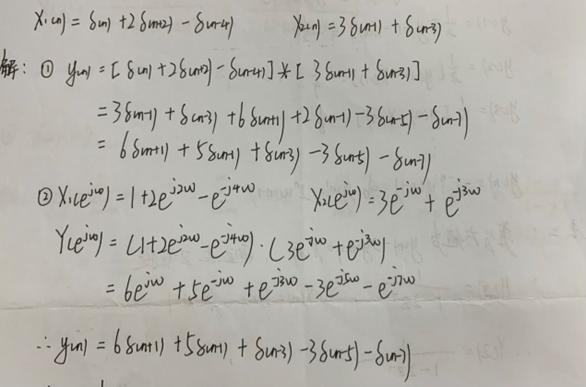 x₁(n) = δ(n) + 2δ(n+2) - δ(n-4)   x₂(n) = 3δ(n-1) + δ(n-3)
解: ① y(n) = [δ(n) + 2δ(n+2) - δ(n-4)] * [3δ(n-1) + δ(n-3)]
= 3δ(n-1) + δ(n-3) + 6δ(n+1) + 2δ(n-1) - 3δ(n-5) - δ(n-7)
= 6δ(n+1) + 5δ(n-1) + δ(n-3) - 3δ(n-5) - δ(n-7)
② X₁(e^{jω}) = 1 + 2e^{j2ω} - e^{-j4ω}   X₂(e^{jω}) = 3e^{-jω} + e^{-j3ω}
Y(e^{jω}) = (1 + 2e^{j2ω} - e^{-j4ω}) · (3e^{-jω} + e^{-j3ω})
= 6e^{jω} + 5e^{-jω} + e^{-j3ω} - 3e^{-j5ω} - e^{-j7ω}
∴ y(n) = 6δ(n+1) + 5δ(n-1) + δ(n-3) - 3δ(n-5) - δ(n-7)